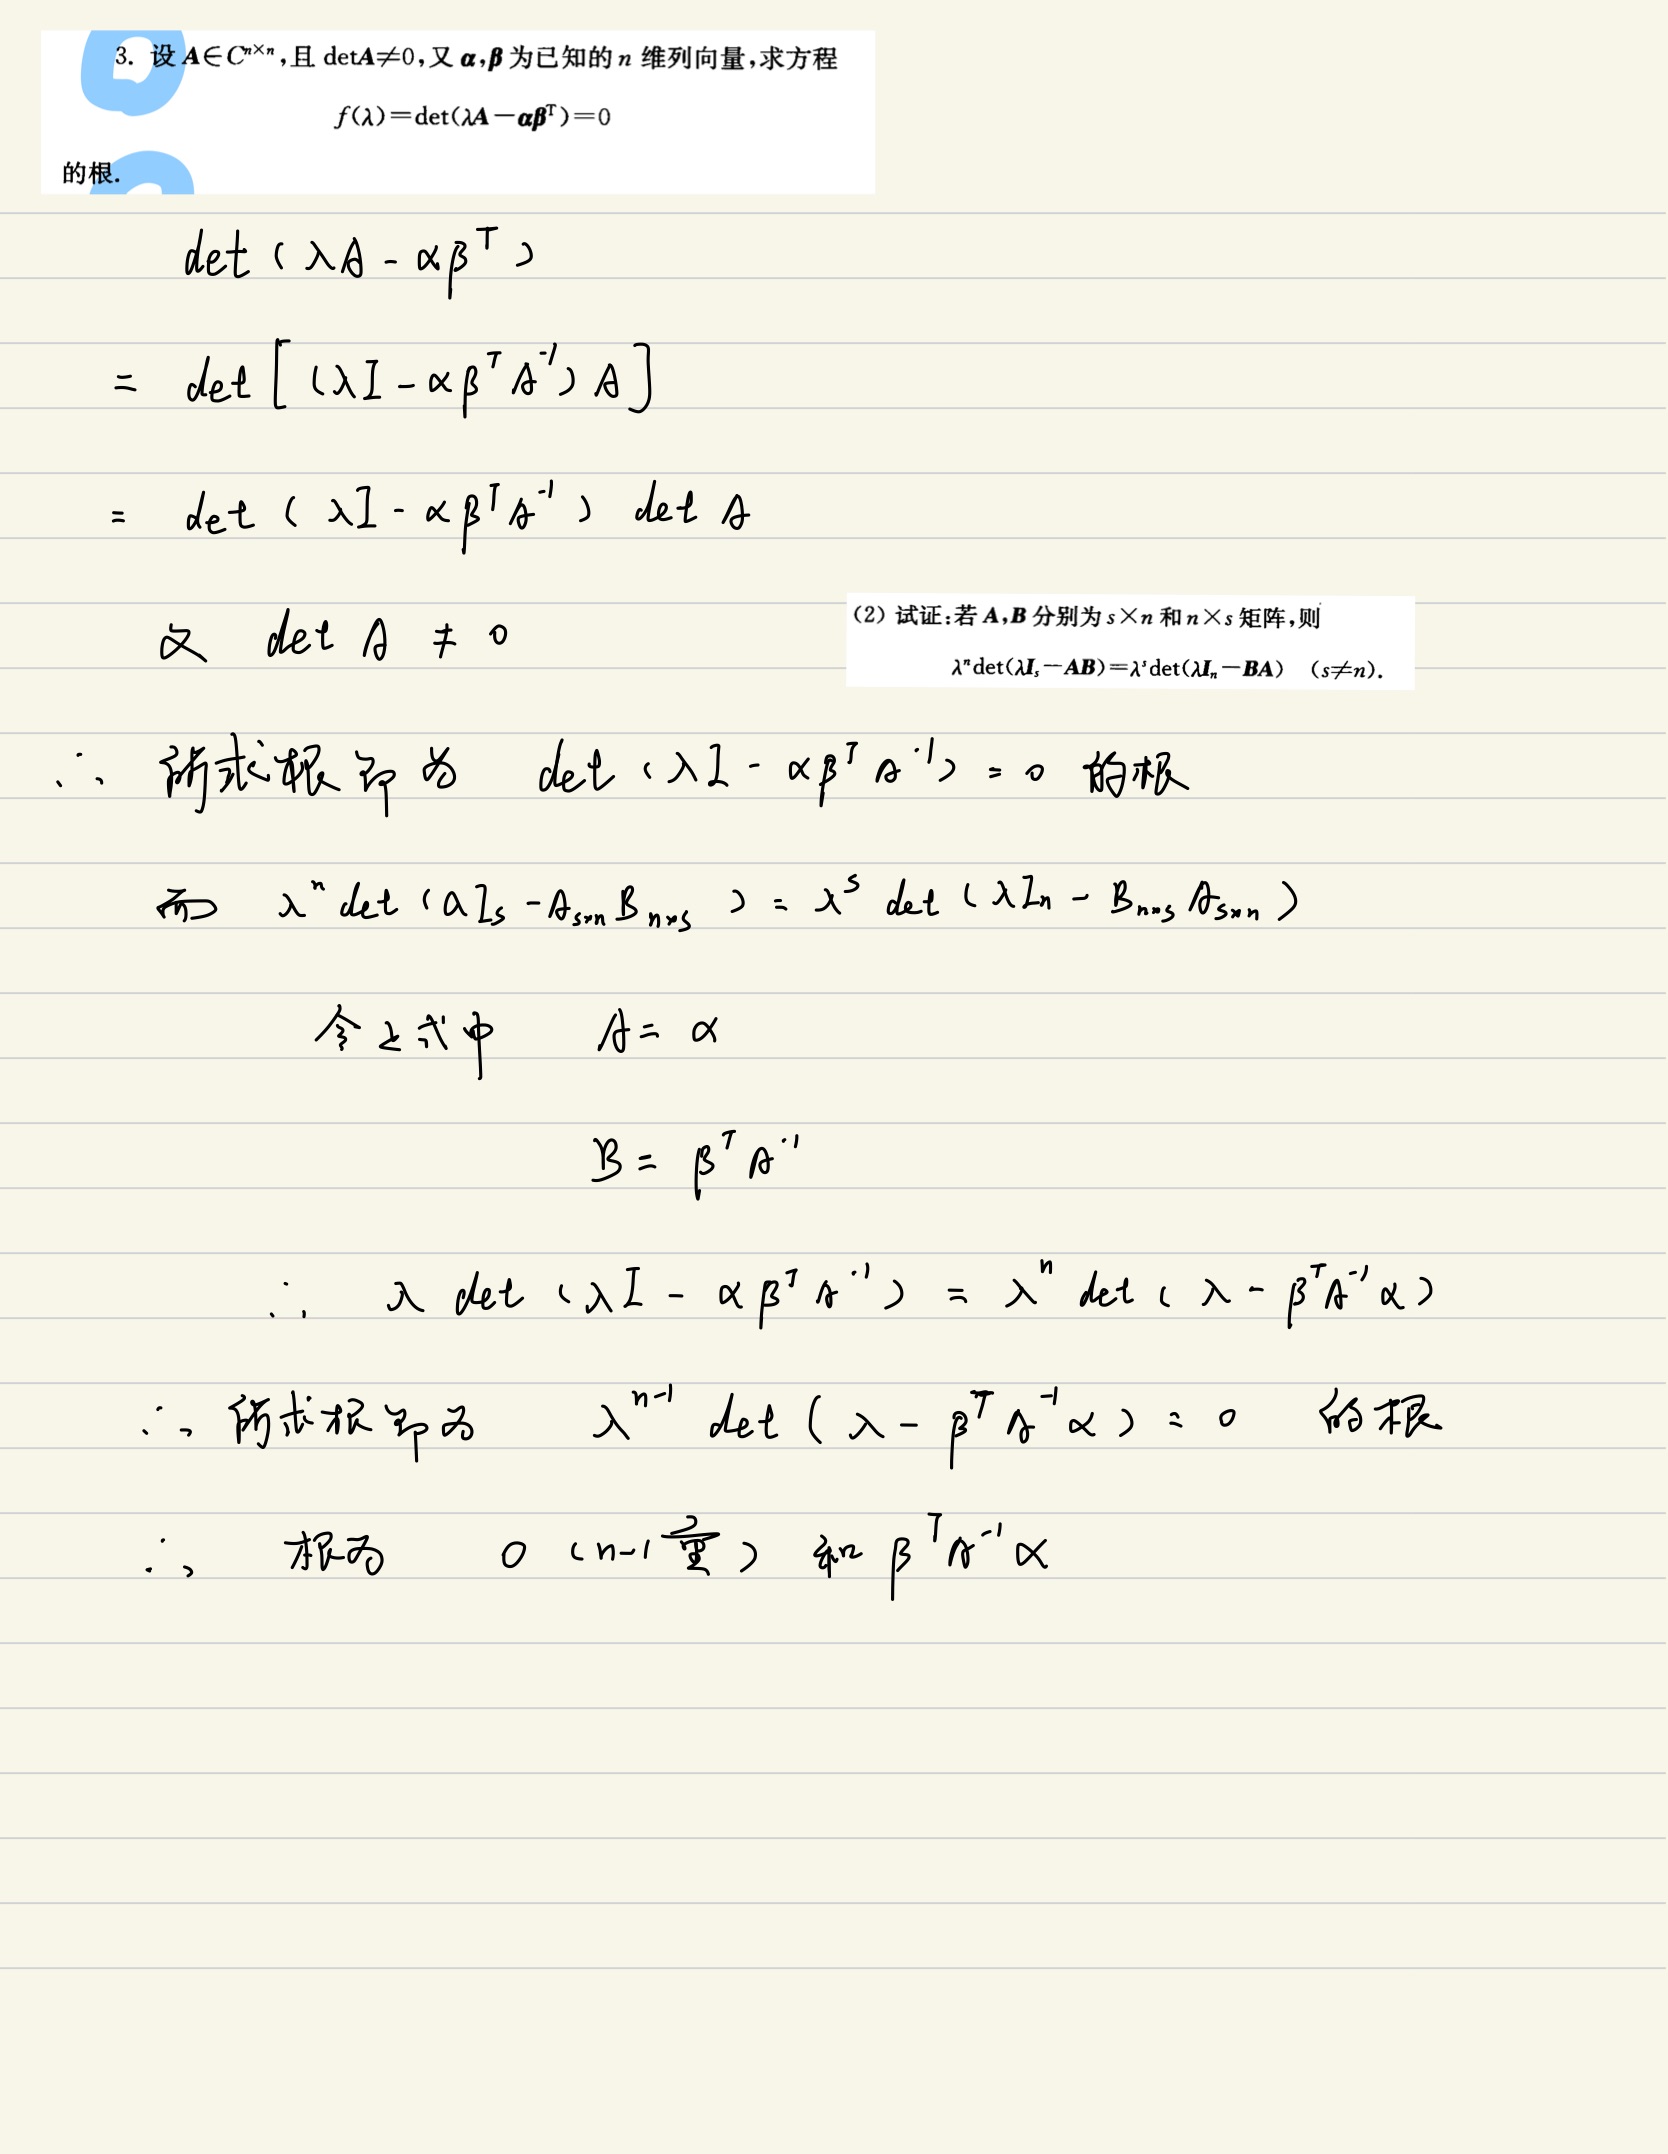 3. 设 A∈Cⁿˣⁿ,且 detA≠0,又 α,β 为已知的 n 维列向量,求方程
f(λ)=det(λA−αβᵀ)=0
的根.
det (λA - αβᵀ)
= det [(λI - αβᵀA⁻¹) A]
= det (λI - αβᵀA⁻¹) det A
又 det A ≠ 0
(2) 试证:若 A,B 分别为 s×n 和 n×s 矩阵,则
λⁿdet(λIₛ−AB)=λˢdet(λIₙ−BA) (s≠n).
∴ 所求根即为 det (λI - αβᵀA⁻¹) = 0 的根
而 λⁿ det (aIₛ - Aₛₓₙ Bₙₓₛ) = λˢ det (λIₙ - Bₙₓₛ Aₛₓₙ)
令上式中 A = α
B = βᵀA⁻¹
∴ λ det (λI - αβᵀA⁻¹) = λⁿ det (λ - βᵀA⁻¹α)
∴ 所求根即为 λⁿ⁻¹ det (λ - βᵀA⁻¹α) = 0 的根
∴ 根为 0 (n-1重) 和 βᵀA⁻¹α